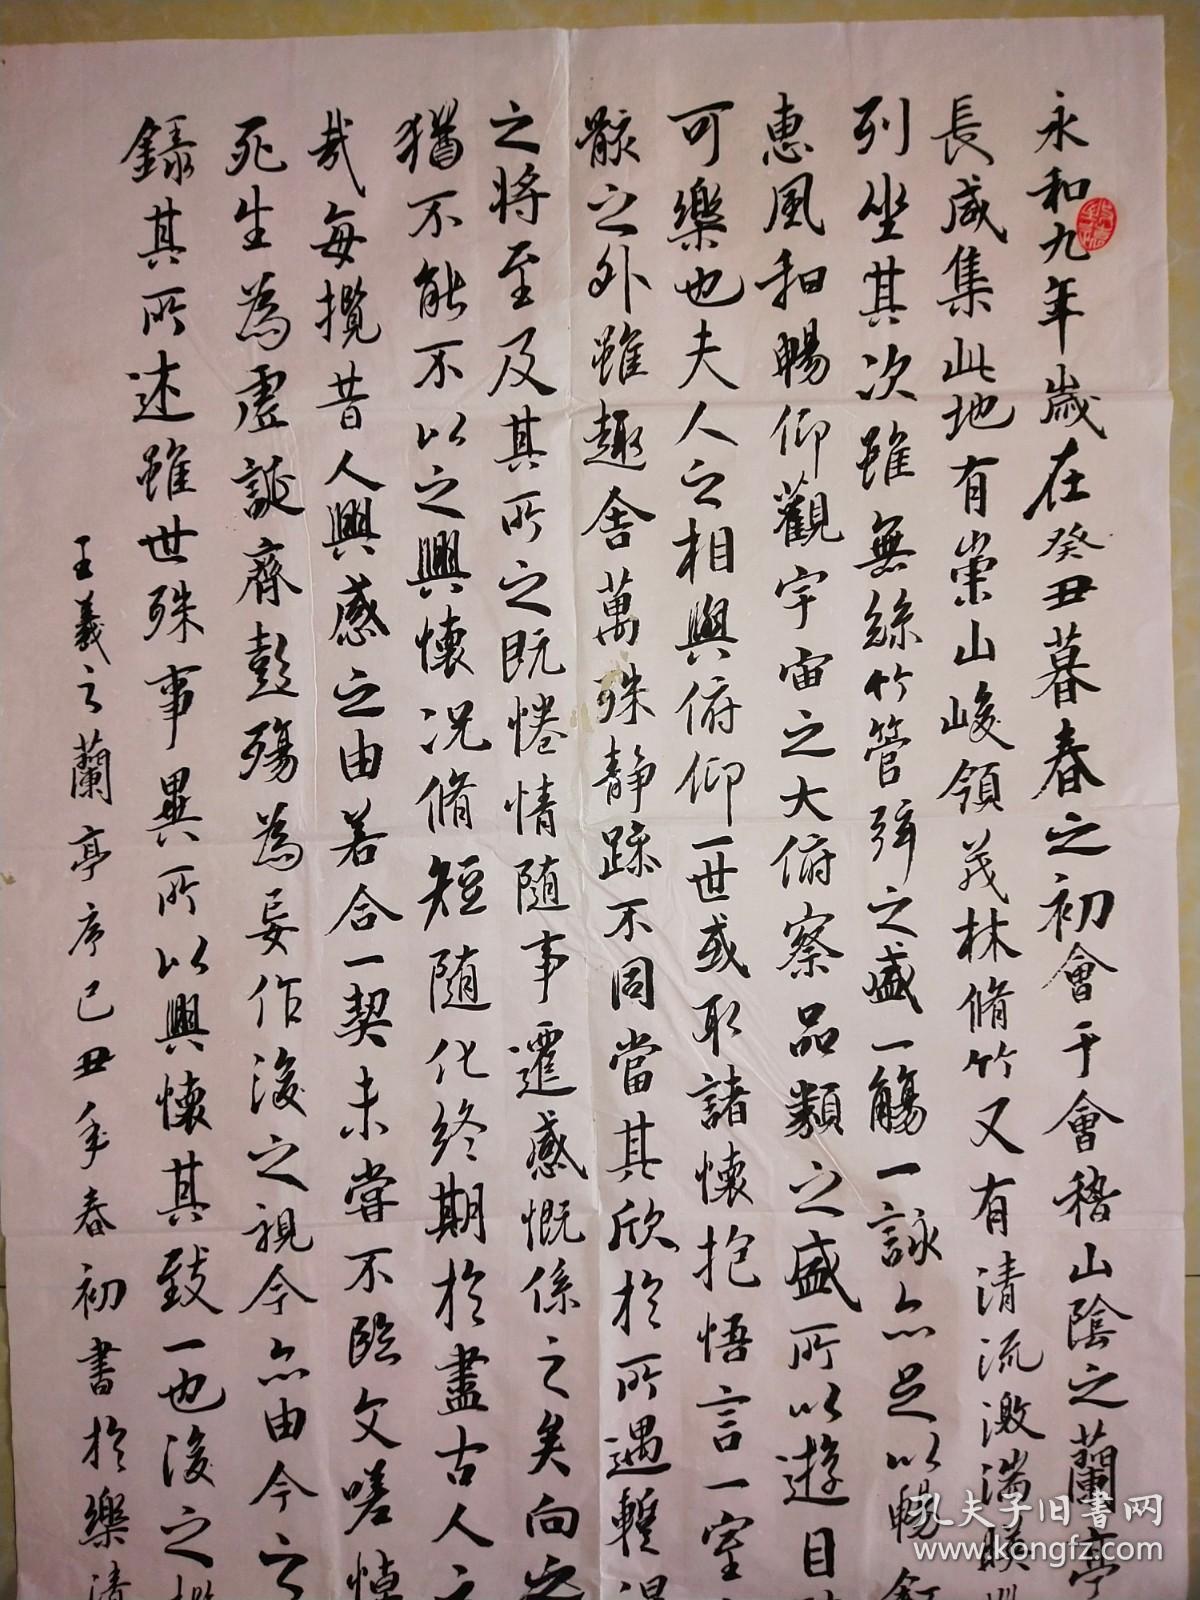 永和九年歲在癸丑暮春之初會于會稽山陰之蘭亭
長咸集此地有崇山峻領茂林脩竹又有清流激湍映
列坐其次雖無絲竹管弦之盛一觴一詠亦足以暢敘
惠風和暢仰觀宇宙之大俯察品類之盛所以遊目
可樂也夫人之相與俯仰一世或取諸懷抱悟言一室
骸之外雖趣舍萬殊靜躁不同當其欣於所遇暫得
之將至及其所之既惓情隨事遷感慨係之矣向之
猶不能不以之興懷況脩短隨化終期於盡古人之
哉每攬昔人興感之由若合一契未嘗不臨文嗟悼
死生為虛誕齊彭殤為妄作後之視今亦由今之
錄其所述雖世殊事異所以興懷其致一也後之攬
王羲之蘭亭序己丑年春初書於樂清
孔夫子旧书网
www.kongfz.com